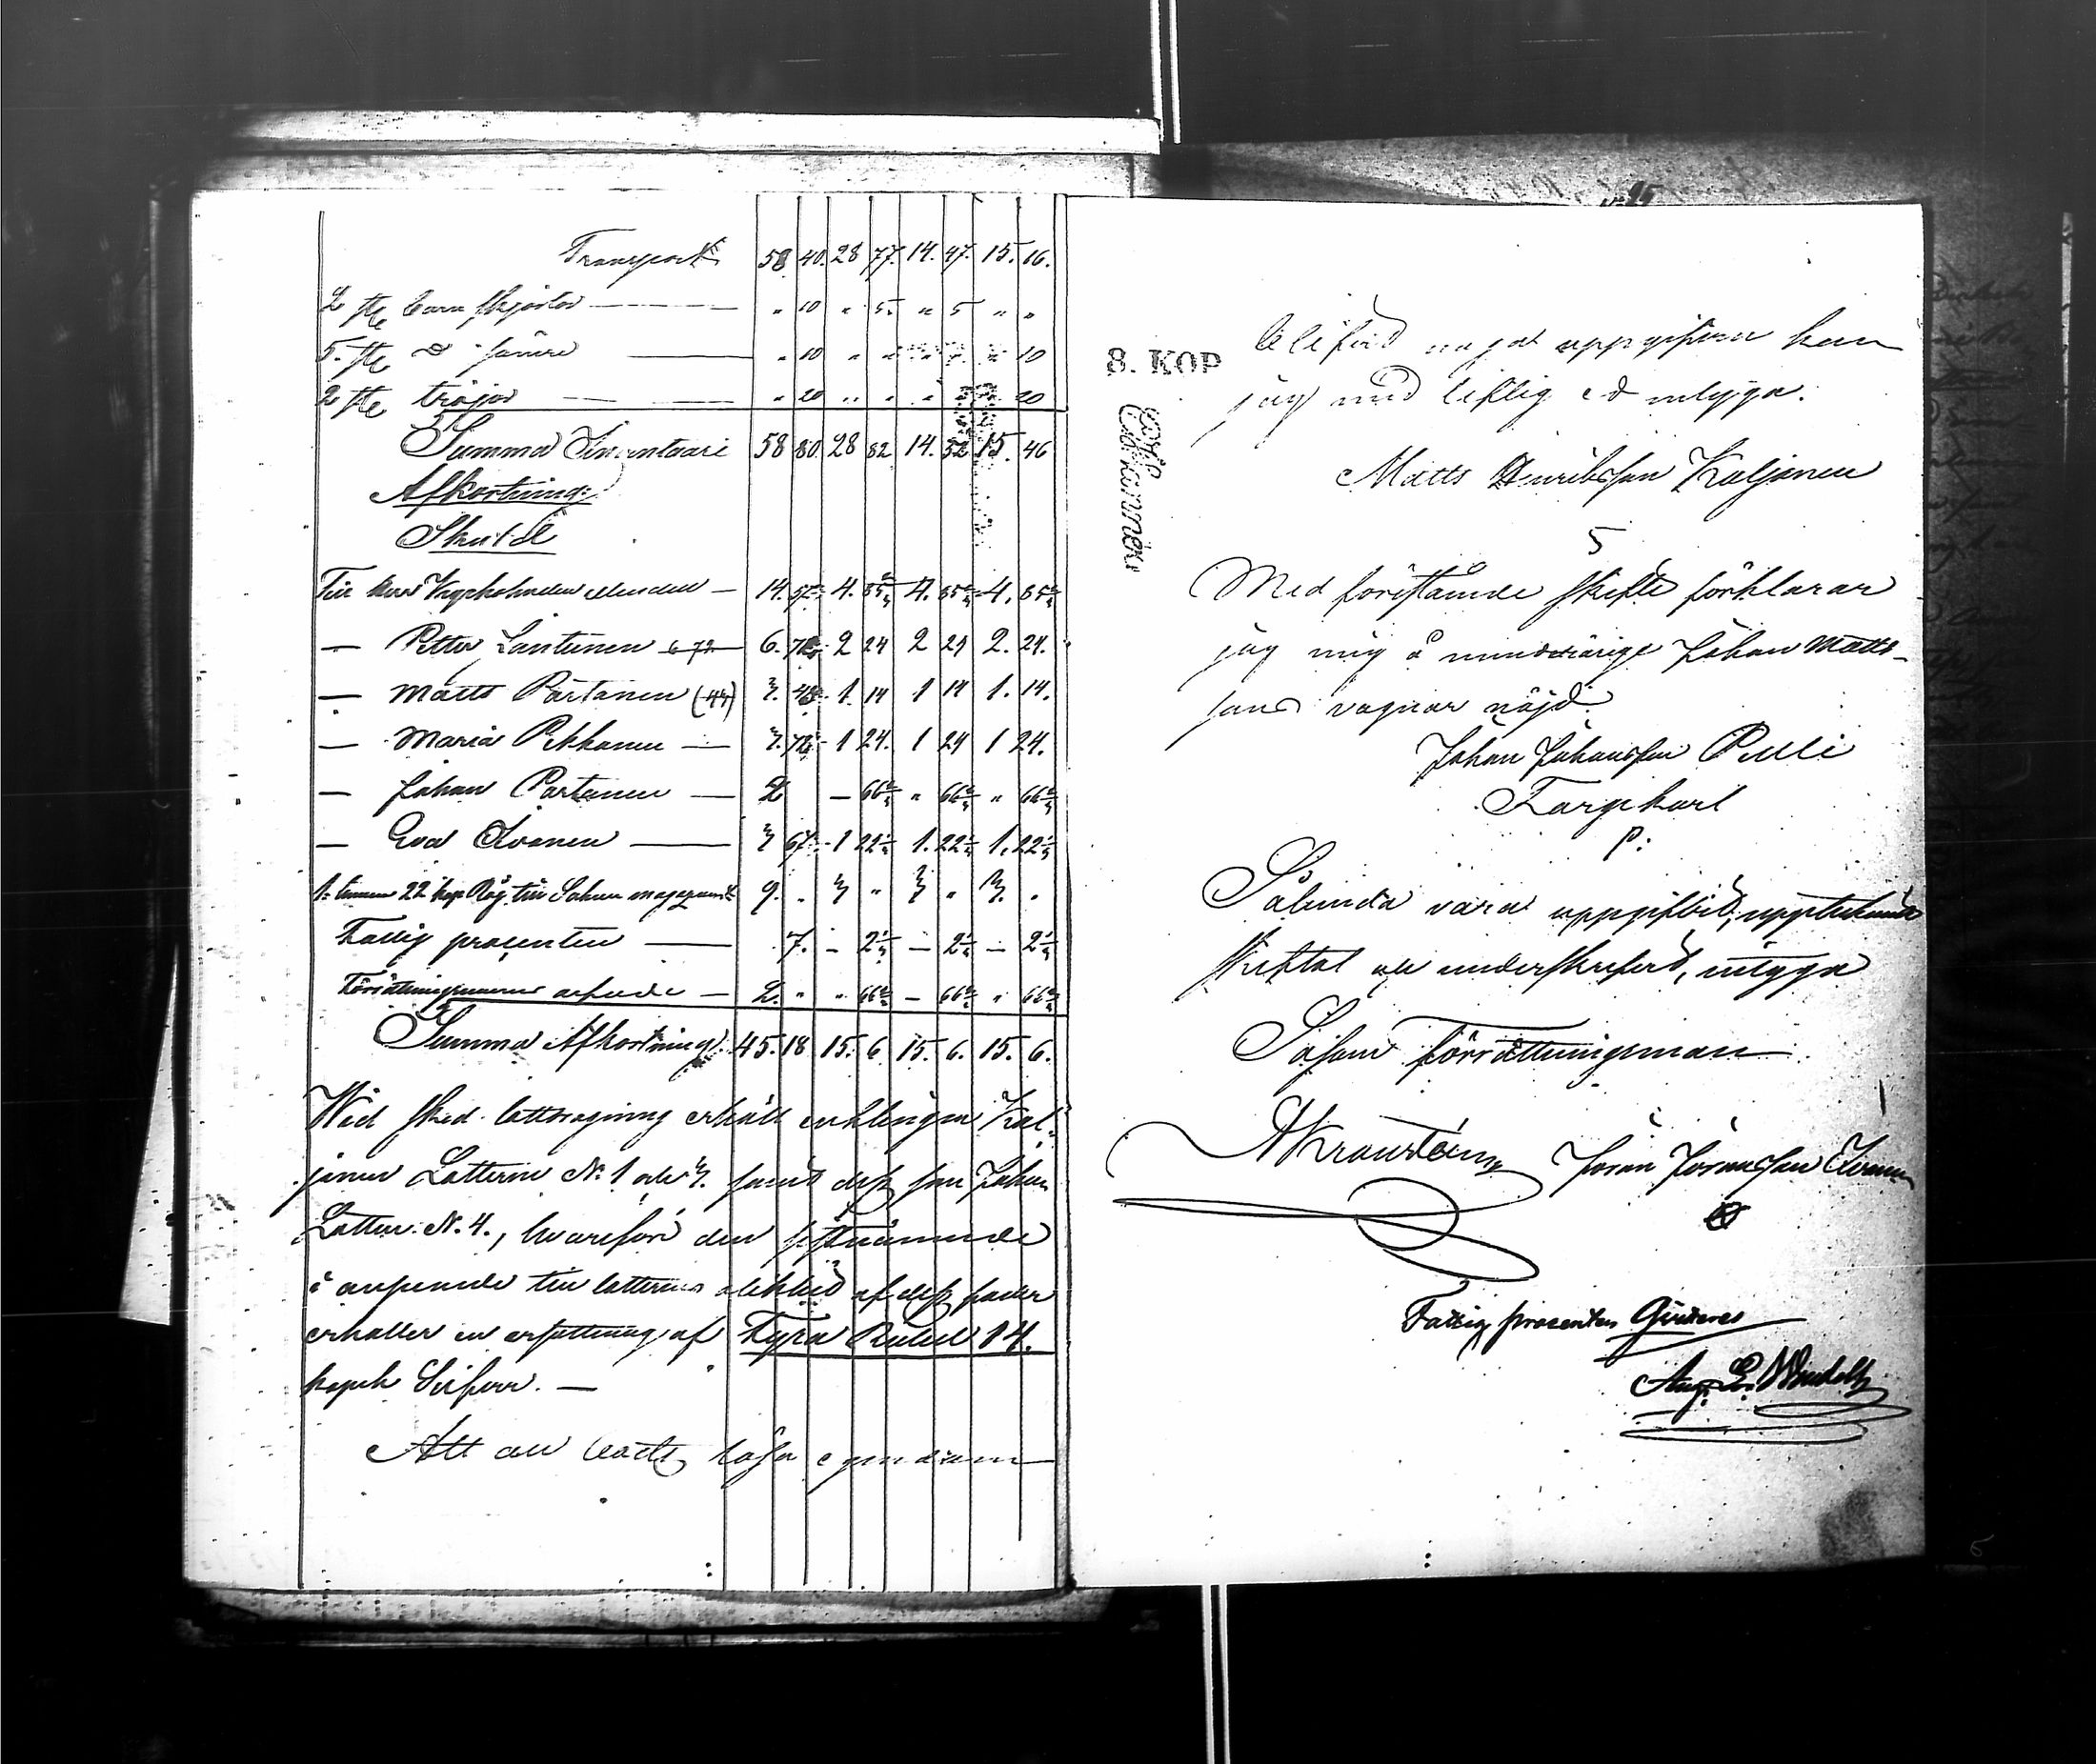 Transport 58. 40. 28 77. 14. 47. 15. 16.
2 st barn skjortor — " 10 " 5 " 5 " "
5 st d sämre — " 10 " " " " " 10
2 st tröjor — " 20 " " " " " 20
Summa Inventarii 58 80. 28 82. 14. 52 15. 46
Afkortning:
Skuld
Till 14. 57 4. 85 2/3 4. 85 2/3 4. 85 2/3
— Petter Lantunen 6 72 6. 72 2 24 2 24 2. 24.
— Matts Partanen 3. 42 1. 14 1 14 1. 14.
— Maria Pekkanen — 3. 72 1 24. 1 24 1 24.
— Johan Partanen — 2 — 66 2/3 " 66 2/3 " 66 2/3
— Eva Ikonen — 3 67 1 22 1/3 1. 22 1/3 1. 22 1/3
1 tunna 22 kap Råg till Sokne magazinet 9. " 3 " 3 " 3. "
Fattig procenten — 7. — 2 1/3 — 2 1/3 — 2 1/3
Förrättningsmannens arfvode — 2. " " 66 2/3 — 66 2/3 " 66 2/3
Summa Afkortning. 45. 18 15. 6 15. 6. 15. 6.
Wid sked lottdragning erhöll enklingen Kol-
jonen Lotterne N. 1 och 3. samt dess son Johan
Lotten N. 4., hvarföre den sistnämnde
i anseende till lotternas olikhet af dess fader
erhåller en ersättning af Fyra Rubel 14.
kopek Silfver. —
Att all lösa egendom
8. KOP
blifvit uppgifven kan
jag med liflig ed intyga.
Matts Henriksson Koljonen
Med förestående skifte förklarar
jag mig å minderårige Johan Matts-
sons vägnar nöjd.
Johan Johansson Pulli
Torpkarl
Sålunda vara uppgifvit, upptecknadt
skiftat och underskrifvit, intyga
Såsom förrättningsman
Göran Göransson Ikonen
Fattig procenten Qvitteras